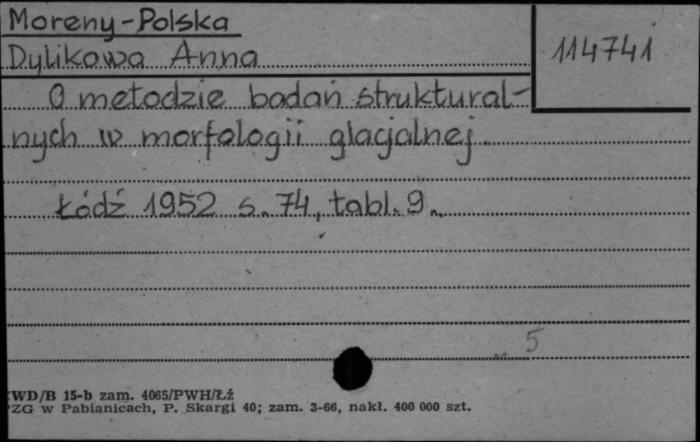 Moreny-Polska
114741
Dylikowa Anna
O metodzie badań struktural-
nych w morfologii glacjalnej.
Łódź 1952 s. 74, tabl. 9.
5
WD/B 15-b zam. 4065/PWH/Łź
ZG w Pabianicach, P. Skargi 40; zam. 3-66, nakł. 400 000 szt.